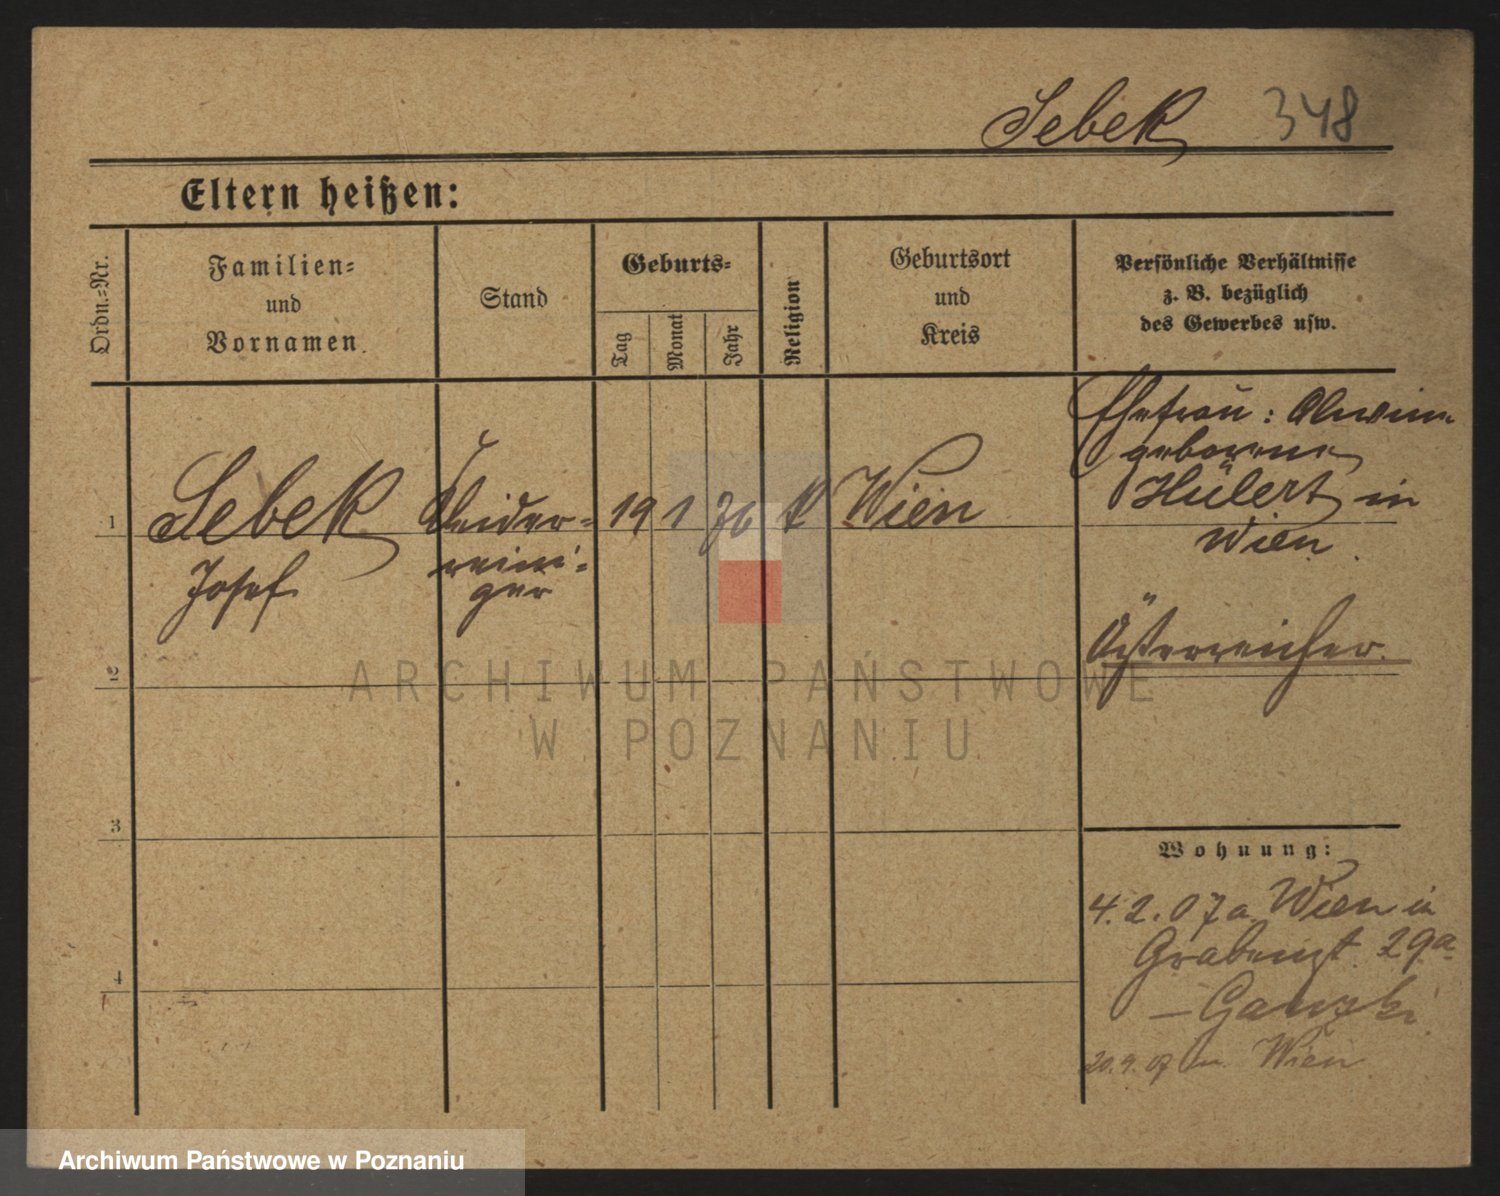 Sebek 348
Eltern heißen:
Ordn.-Nr.
Familien-
und
Vornamen.
Stand
Geburts-
Tag
Monat
Jahr
Religion
Geburtsort
und
Kreis
Persönliche Verhältnisse
z. B. bezüglich
des Gewerbes usw.
1
Sebek
Josef
Kleider-
reini-
ger
19 1 76 k Wien
Ehefrau:
geborene
Hülert in
Wien.
Österreicher.
2
3
4
Wohnung:
4.2.07 a. Wien in
Grabenst. 29a
20.9.07 n. Wien
ARCHIWUM PAŃSTWOWE
W POZNANIU
Archiwum Państwowe w Poznaniu